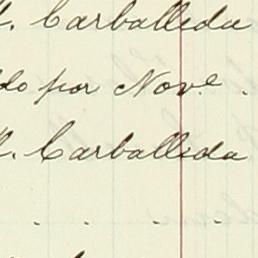 M. Carballida
do por Nov.e .
M. Carballida
. . . .